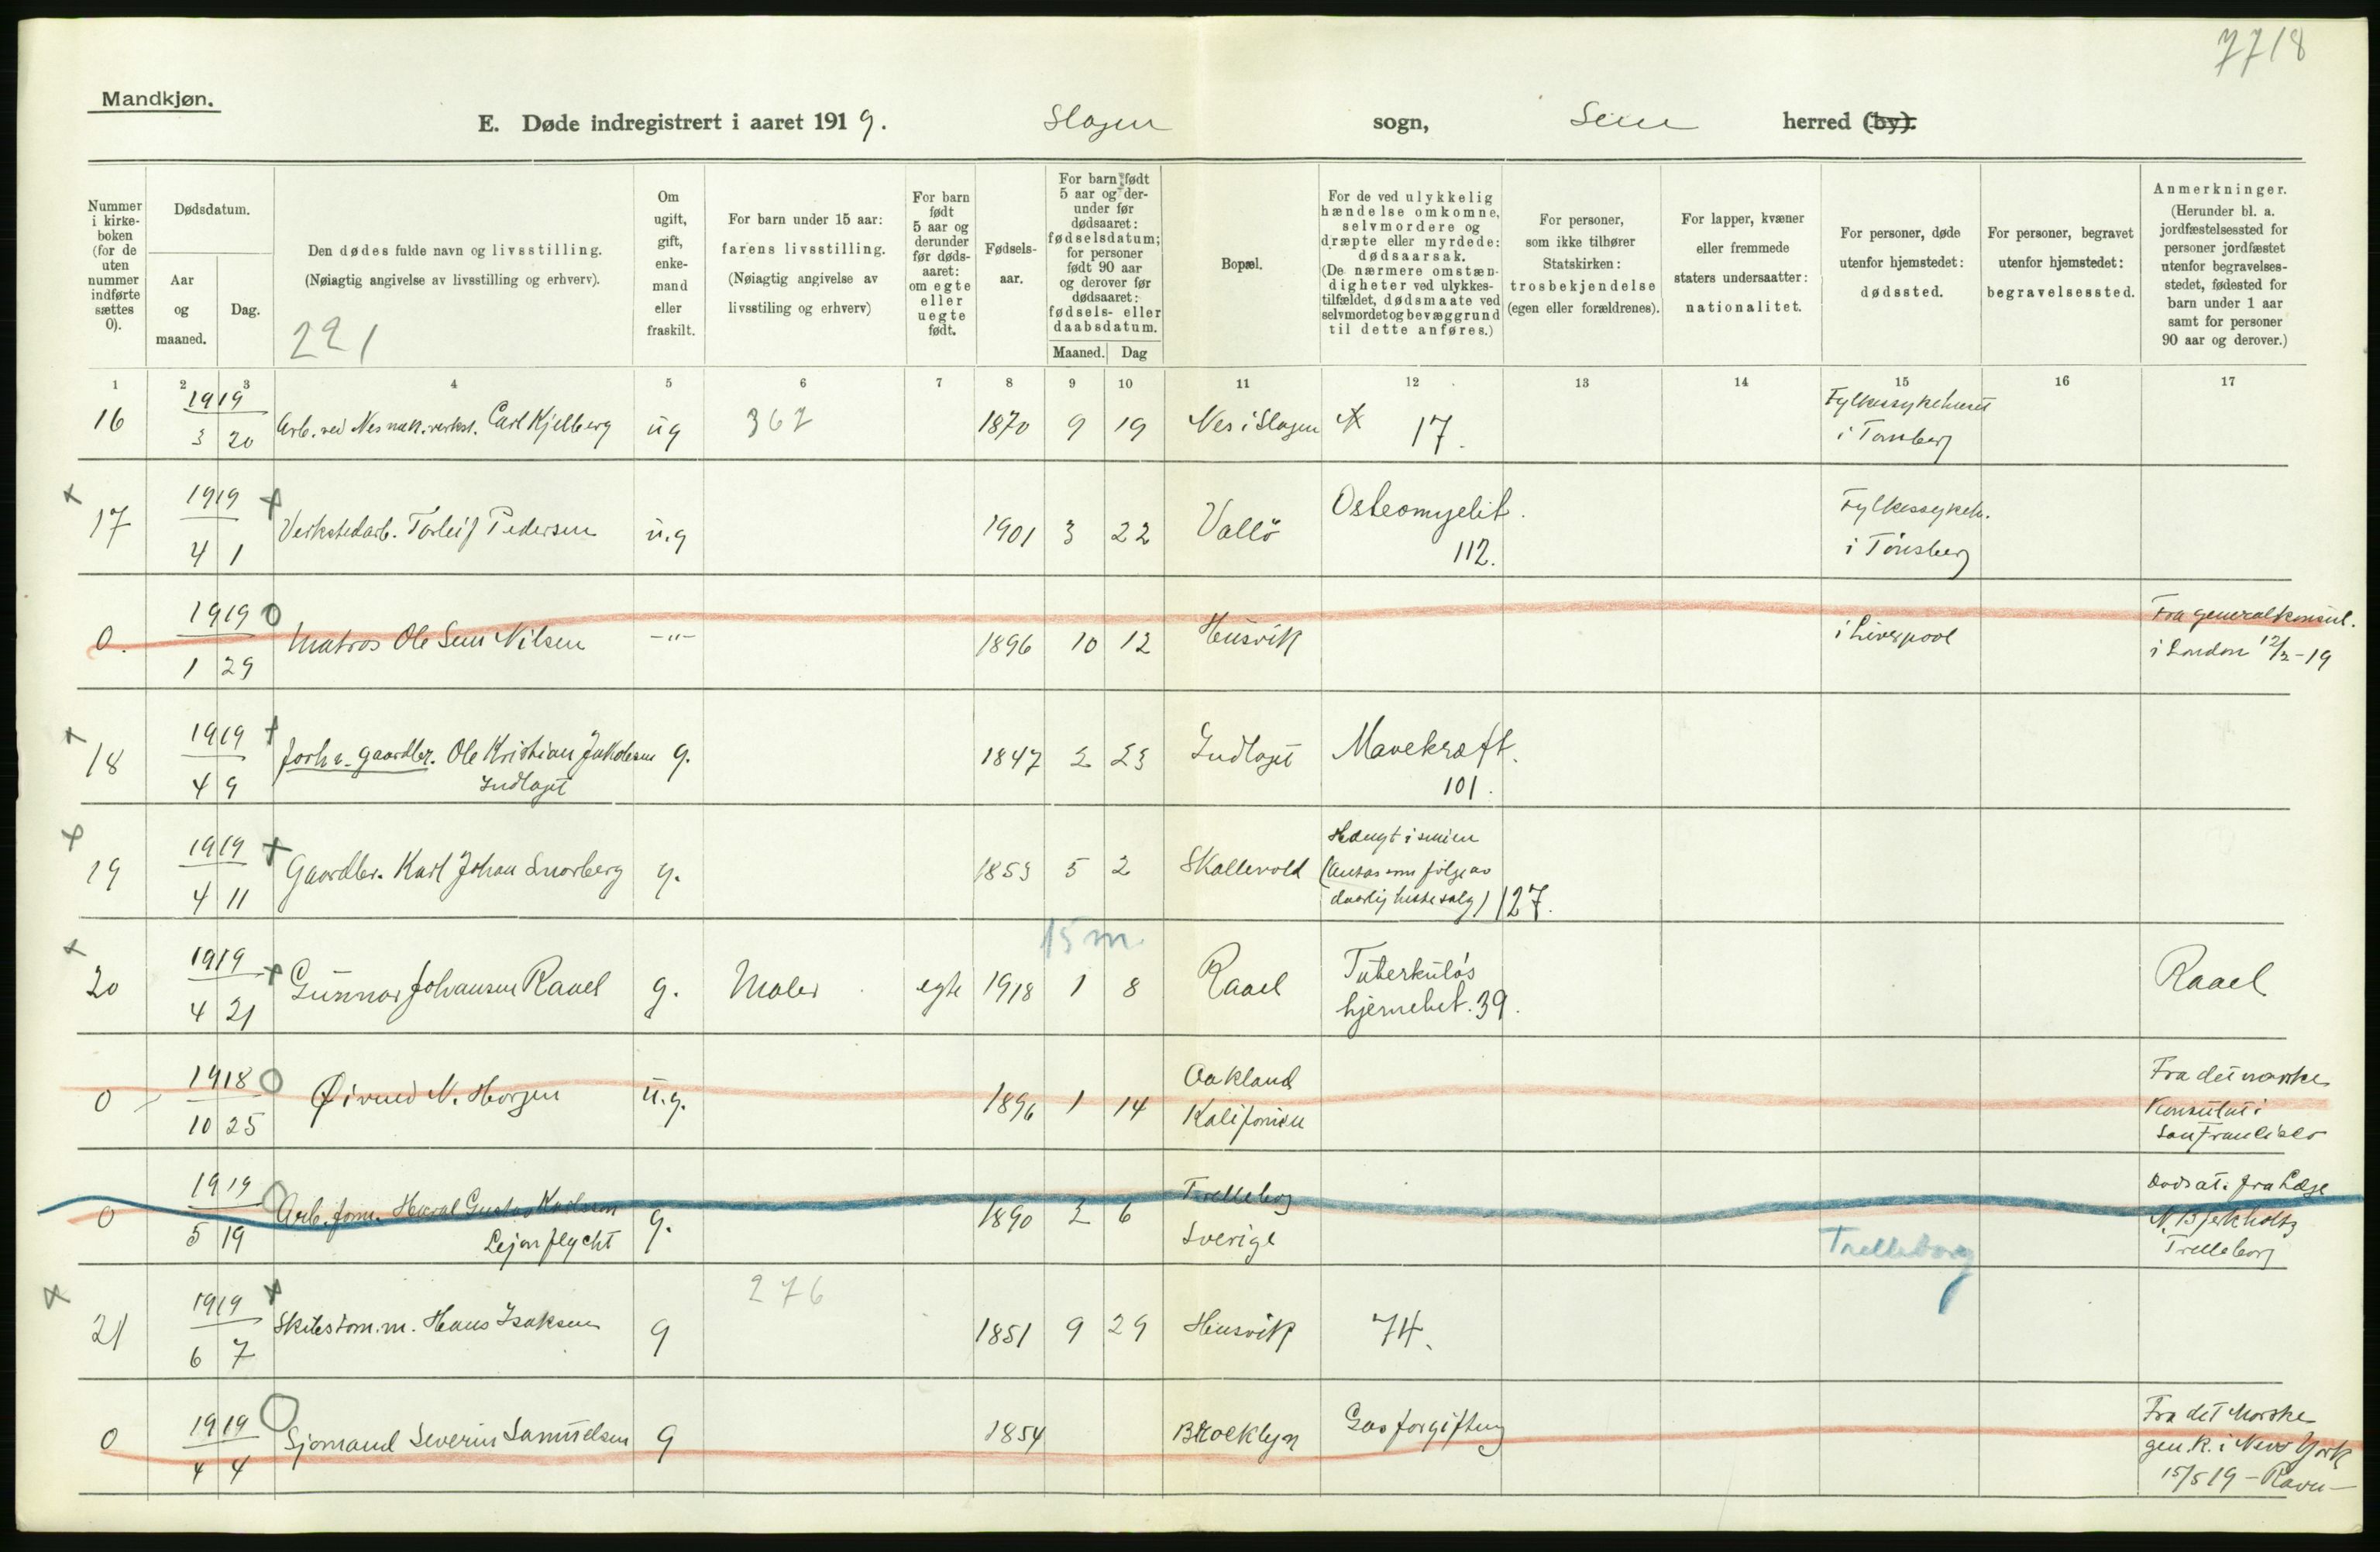 7718
Mandkjøn.
E. Døde indregistrert i aaret 1919. Slagen sogn, Sem herred (by).
Nummer i kirke-boken (for de uten nummer indførte sættes 0).
Dødsdatum.
Aar og maaned.
Dag.
Den dødes fulde navn og livsstilling.
(Nøiagtig angivelse av livsstilling og erhverv).
221
Om ugift, gift, enke-mand eller fraskilt.
For barn under 15 aar:
farens livsstilling.
(Nøiagtig angivelse av livsstiling og erhverv)
For barn født 5 aar og derunder før døds-aaret: om egte eller uegte født.
Fødsels-aar.
For barn født 5 aar og der-under før dødsaaret: fødselsdatum; for personer født 90 aar og derover før dødsaaret: fødsels- eller daabsdatum.
Maaned. Dag
Bopæl.
For de ved ulykkelig hændelse omkomne, selvmordere og dræpte eller myrdede: dødsaarsak.
(De nærmere omstæn-digheter ved ulykkes-tilfældet, dødsmaate ved selvmordet og bevæggrund til dette anføres.)
For personer, som ikke tilhører Statskirken: trosbekjendelse (egen eller forældrenes).
For lapper, kvæner eller fremmede staters undersaatter: nationalitet.
For personer, døde utenfor hjemstedet: dødssted.
For personer, begravet utenfor hjemstedet: begravelsessted.
Anmerkninger.
(Herunder bl. a. jordfæstelsessted for personer jordfæstet utenfor begravelses-stedet, fødested for barn under 1 aar samt for personer 90 aar og derover.)
1 2 3 4 5 6 7 8 9 10 11 12 13 14 15 16 17
16 1919 3 20 Arb. ved Nes mek. verkst. Carl Kjelberg ug 367 1870 9 19 Nes i Slagen 17. Fylkessykehuset
i Tønsberg
17 1919 4 1 Verkstedarb. Torleif Pedersen u.g 1901 3 22 Vallö Osteomyelit.
112.
Fylkessykeh.
i Tönsberg
0. 1919 1 29 Matros Ole Sem Nilsen -"- 1896 10 12 Husvik i Liverpool Fra generalkonsul.
i London 12/2-19
18 1919 4 9 forh.v. gaardbr. Ole Kristian Jakobsen g. 1847 2 23 Indlaget Mavekræft.
Indlaget 101.
19 1919 4 11 Gaardbr. Karl Johan Snorberg g. 1853 5 2 Skallevold Hængt i smien
(Antas som følge av
daarlig hestesalg) 127.
15 m.
20 1919 4 21 Gunnar Johansen Raael g. Maler egte 1918 1 8 Raael Tuberkuløs
hjernebet. 39.
Raael
0 1918 10 25 Øivind N. Horgen u.g. 1896 1 14 Oakland
Kalifornien
Fra det norske
Konsulat i
San Francisco
0 1919 5 19 Arb. form. Haral Gustav Karlsson
Lejonflycht g. 1890 2 6 Trelleborg
Sverige
Trelleborg
Dødsat. fra Læge
N. Bjerkholtz
Trelleborg
21 1919 6 7 Skibstøm.m. Hans Isaksen g 276 1851 9 29 Husvik 74.
0 1919 4 4 Sjömand Severin Samuelsen g 1854 Brooklyn Gasforgiftning Fra det Norske
gen.k. i New York
15/5 19 - Ravn -